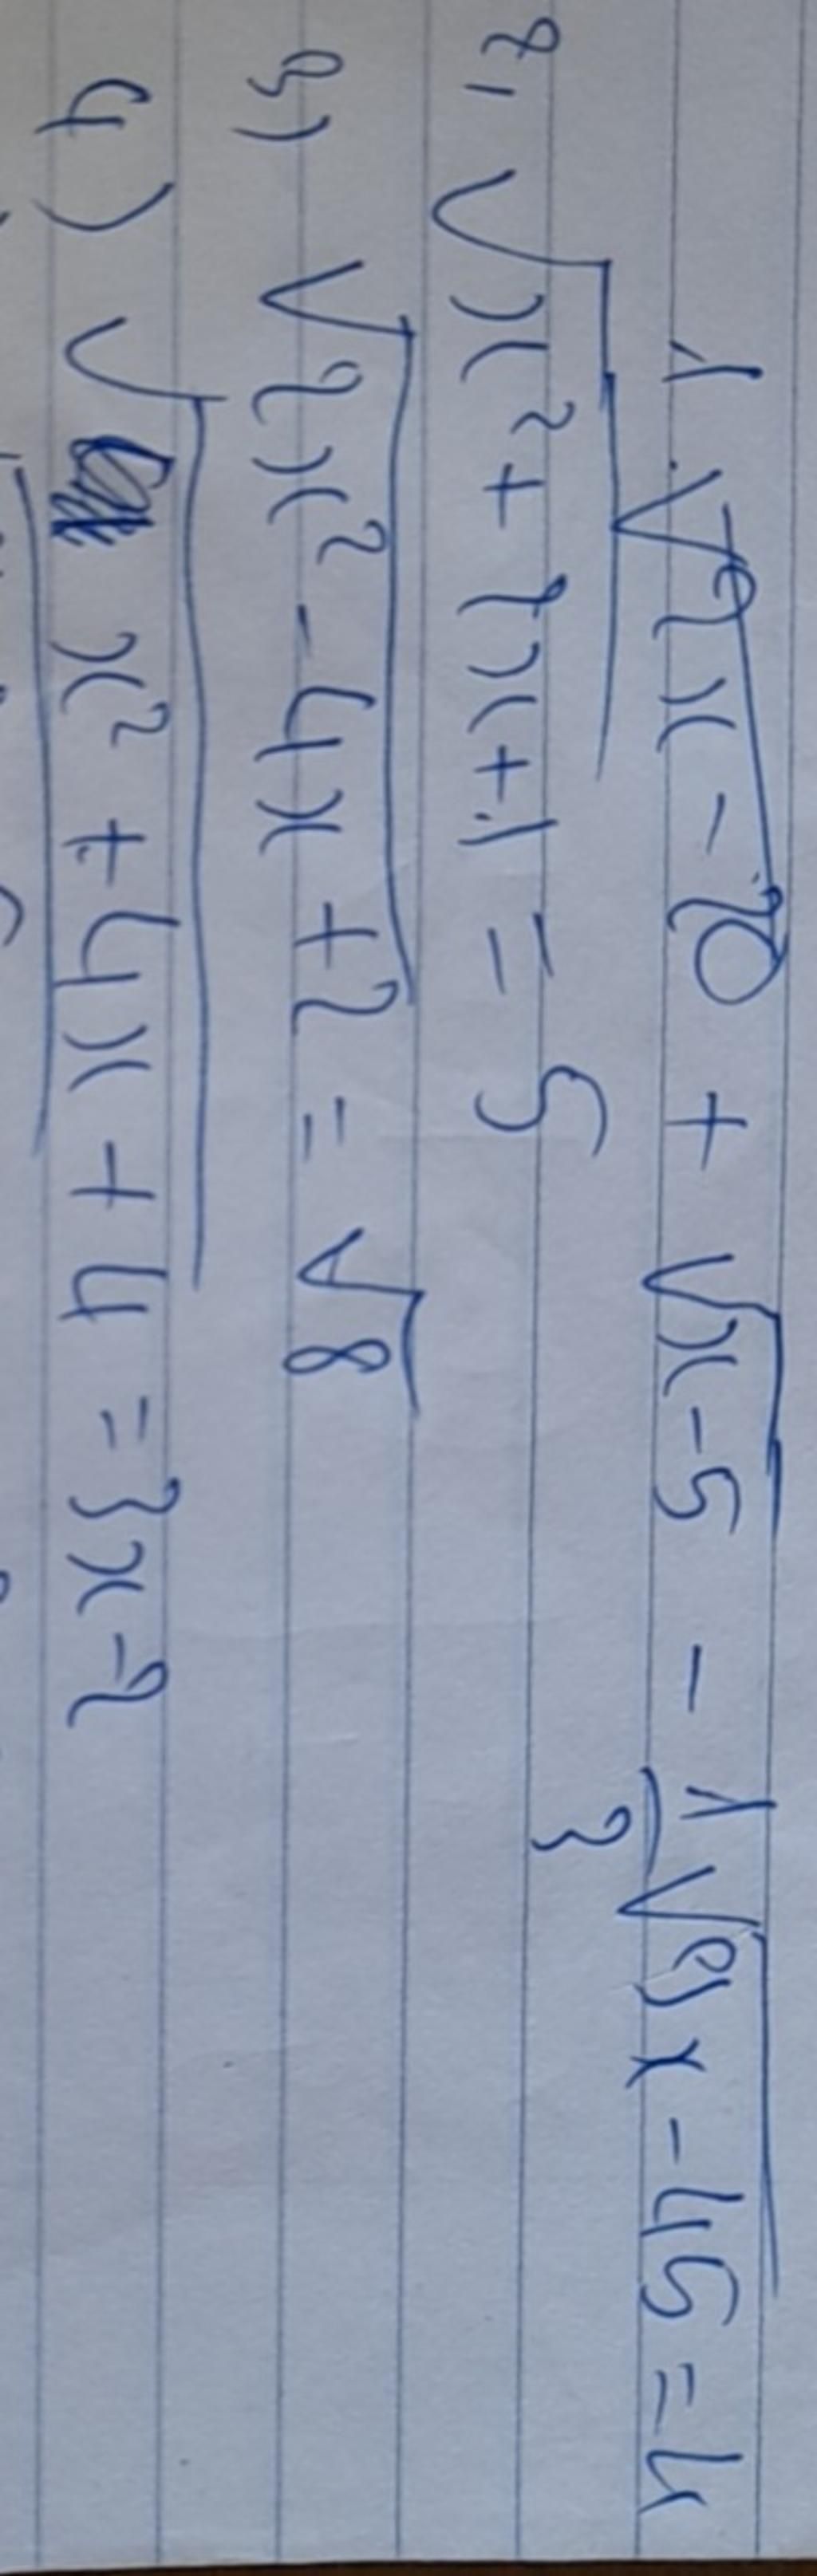 1. √2x-20 + √x-5 - 1/3 √9x-45 = 4
2, √x²+2x+1 = 5
3) √2x²-4x+2 = √8
4) √x²+4x+4 = 3x-2